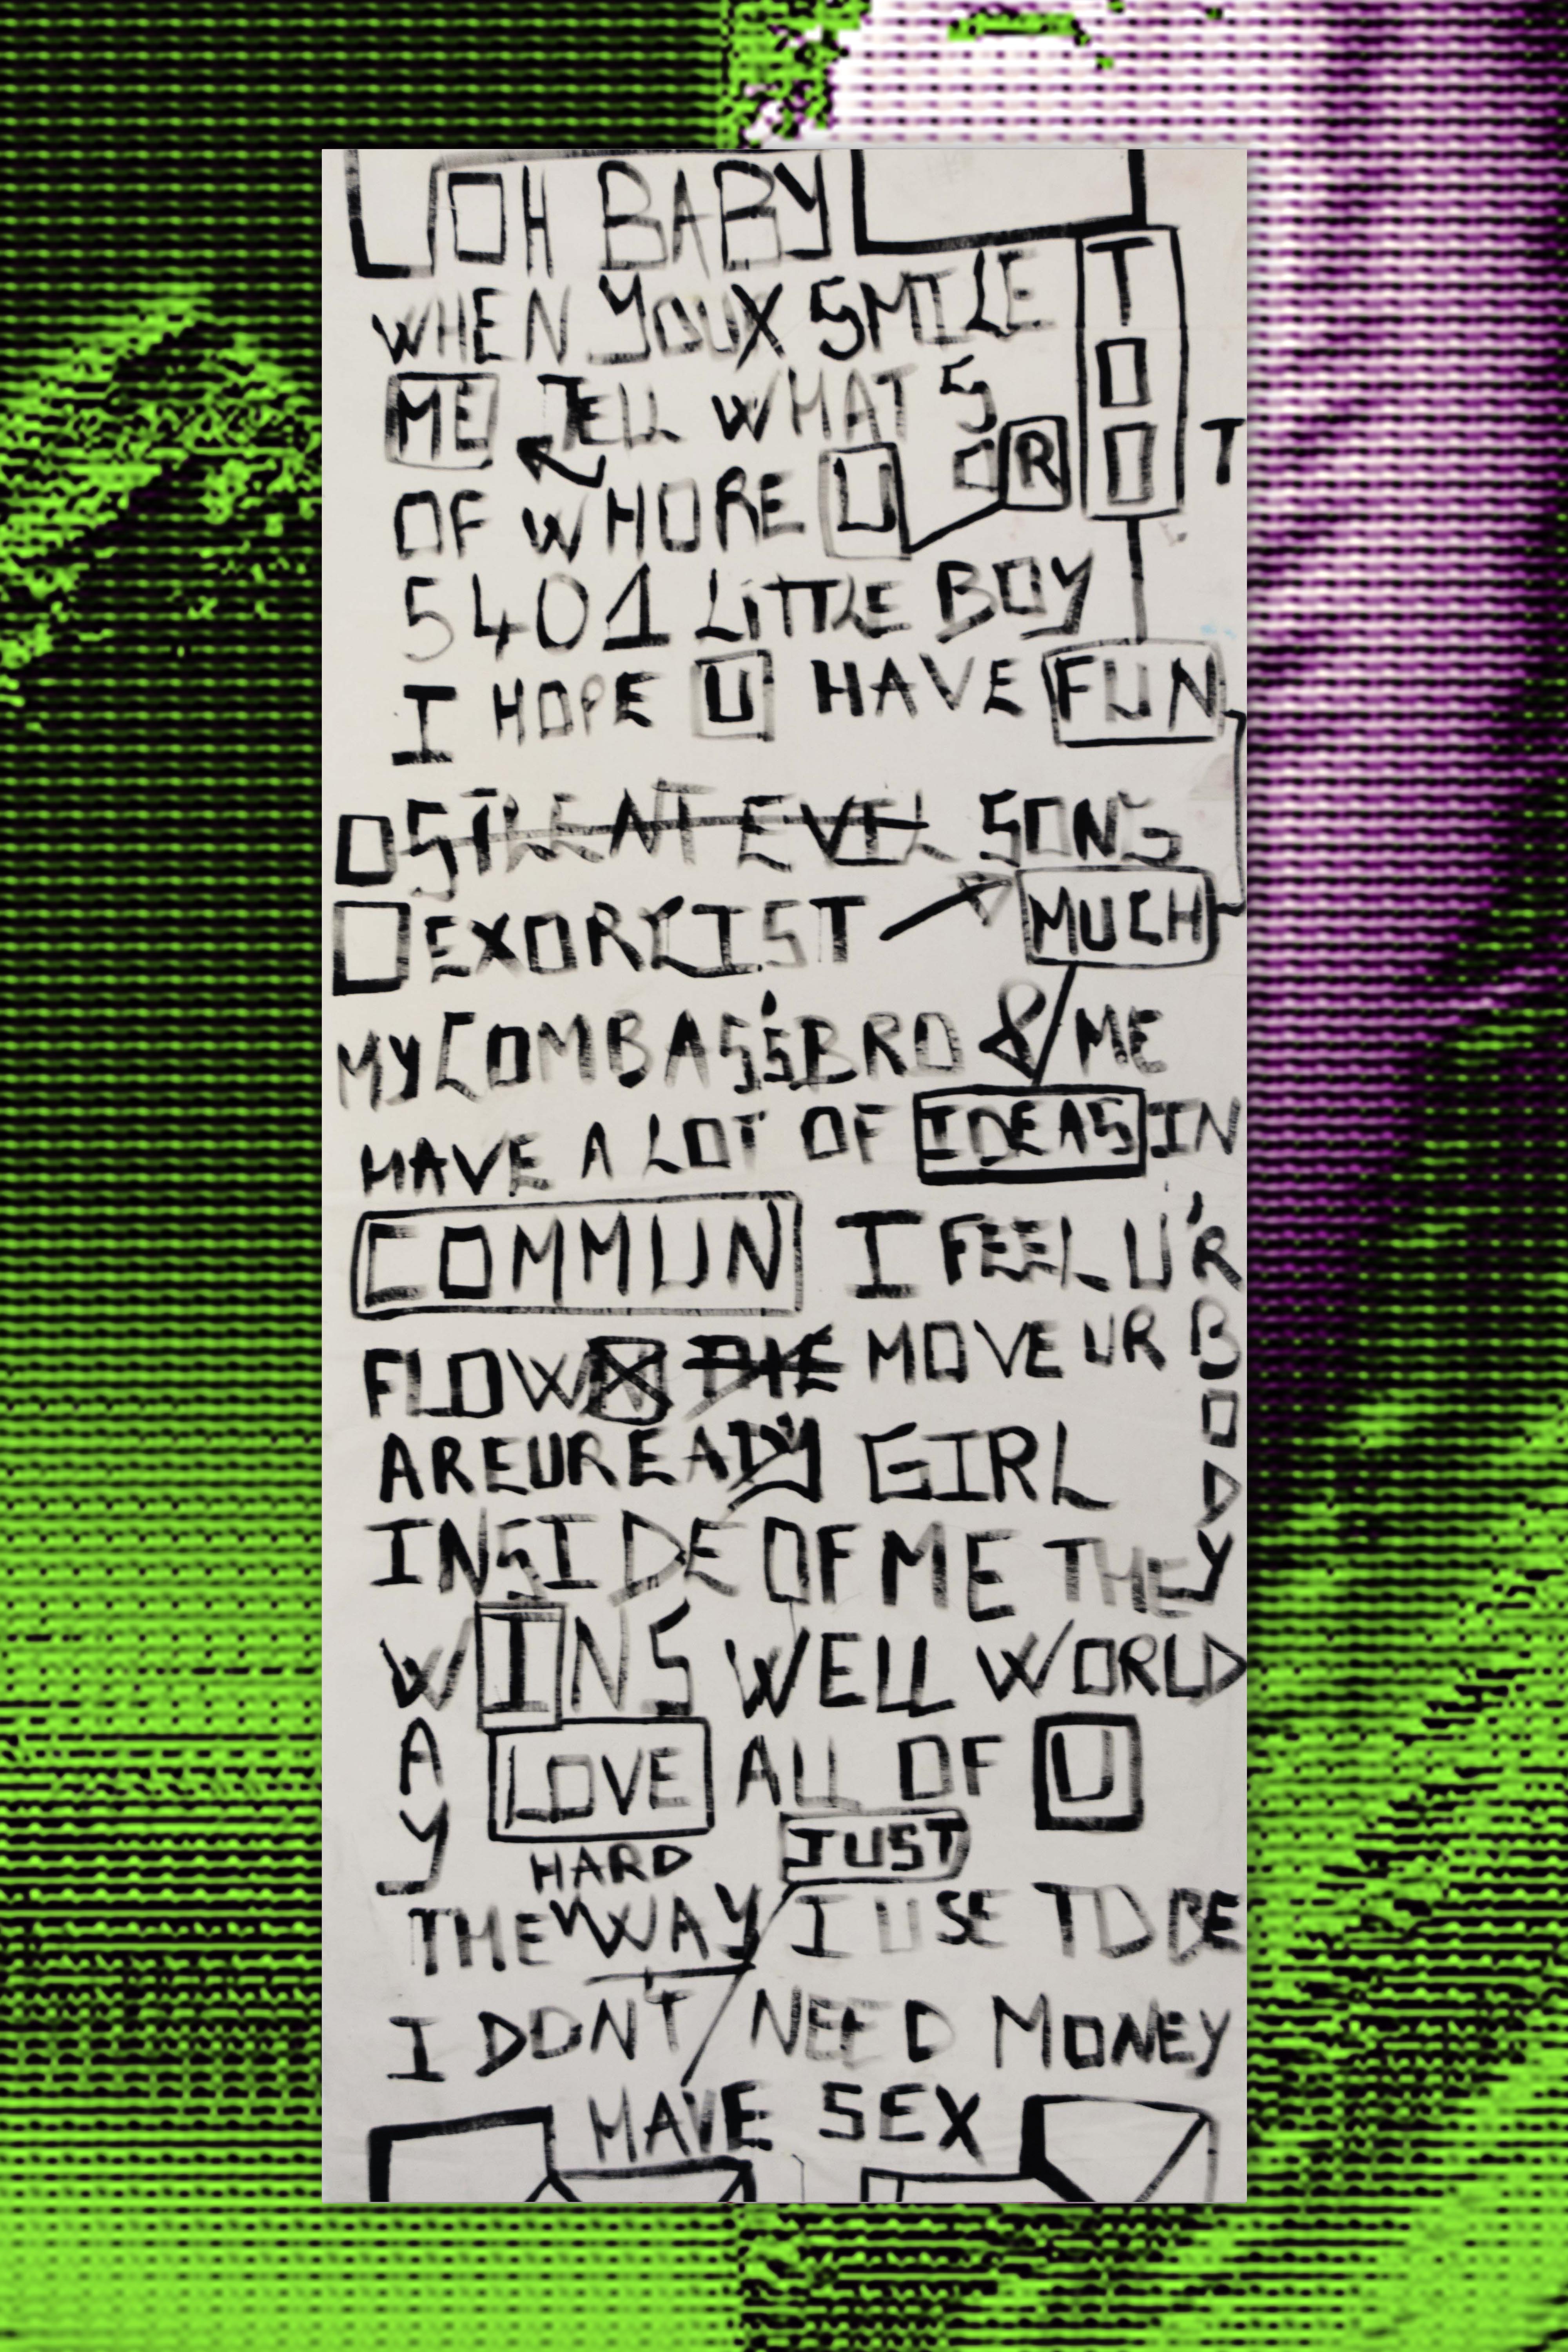 OH BABY
WHEN YOUX SMILE
TOO
ME TELL WHAT S
OR T
OF WHORE U
5401 LiTTLE BOY
I HOPE U HAVE FUN
O SILENT EVIL SONG
EXORCIST MUCH
MY COMBASS'S BRO & ME
HAVE A LOT OF IDEAS IN
COMMUN I FEEL U'R
FLOW DIE MOVE UR BODY
ARE U READY GIRL
INSIDE OF ME THEY
WINS WELL WORLD
AY
LOVE ALL OF U
HARD JUST
THE WAY I USE TO BE
I DON'T NEED MONEY
HAVE SEX